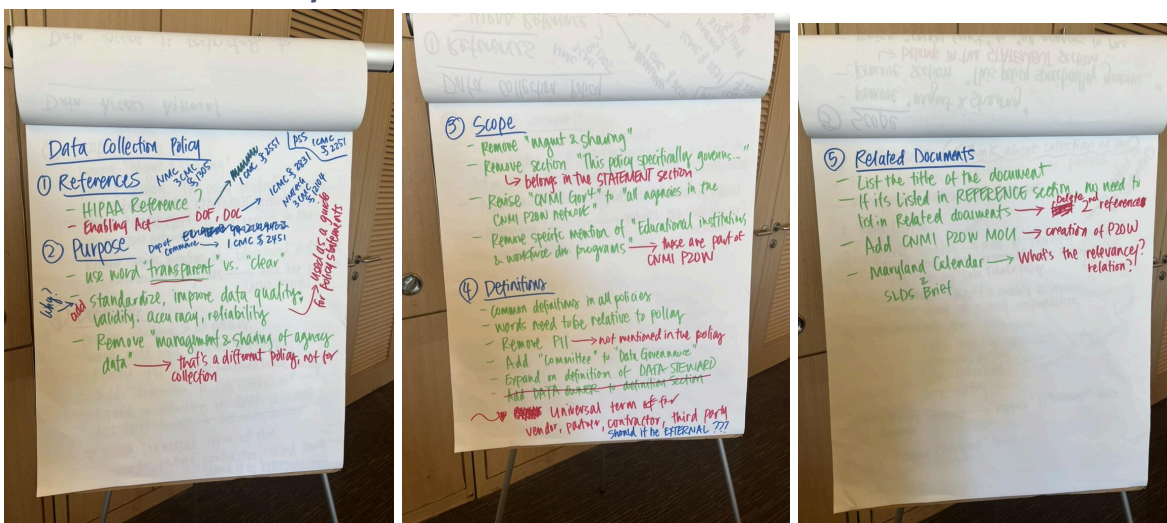 Data Collection Policy
PSS 1 CMC
§ 2251
① References
NMC
3 CMC
§ 1305
1 CMC § 2551
- HIPAA Reference?
- Enabling Act DOF, DOL
1 CMC § 2231
② Purpose
Dep of
Commerce 1 CMC § 2451
- use word "transparent" vs. "clear"
why?
add
- standardize, improve data quality,
validity, accuracy, reliability
used as a guide
for policy statements
- Remove "management & sharing of agency
data" that's a different policy, not for
collection
③ Scope
- Remove "mgmt & sharing"
- Remove section "This policy specifically governs..."
belongs in the STATEMENT section
- Revise "CNMI Gov't" to "all agencies in the
CNMI P20W network"
- Remove specific mention of "Educational institutions
& workforce dev programs" these are part of
CNMI P20W
④ Definitions
- common definitions in all policies
- words need to be relative to policy
- Remove PII not mentioned in the policy
- Add "Committee" to "Data Governance"
- Expand on definition of DATA STEWARD
- Add DATA OWNER to definition section
Universal term for
vendor, partner, contractor, third party
should it be EXTERNAL ???
⑤ Related Documents
- List the title of the document
- If its Listed in REFERENCE section, no need to
list in Related documents Delete 2nd reference
- Add CNMI P20W MOU creation of P20W
- Maryland Calendar What's the relevancy?
relation?
&
SLDS Brief